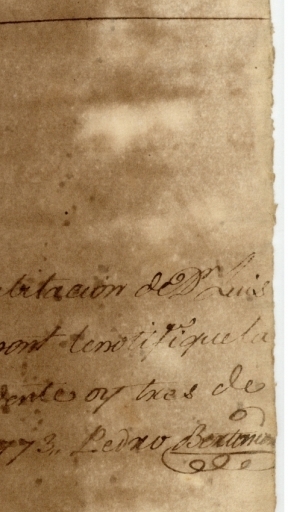 bitacion de Dn Luis
mont le notifique la
dente oy tres de
1773. Pedro Bertomeu